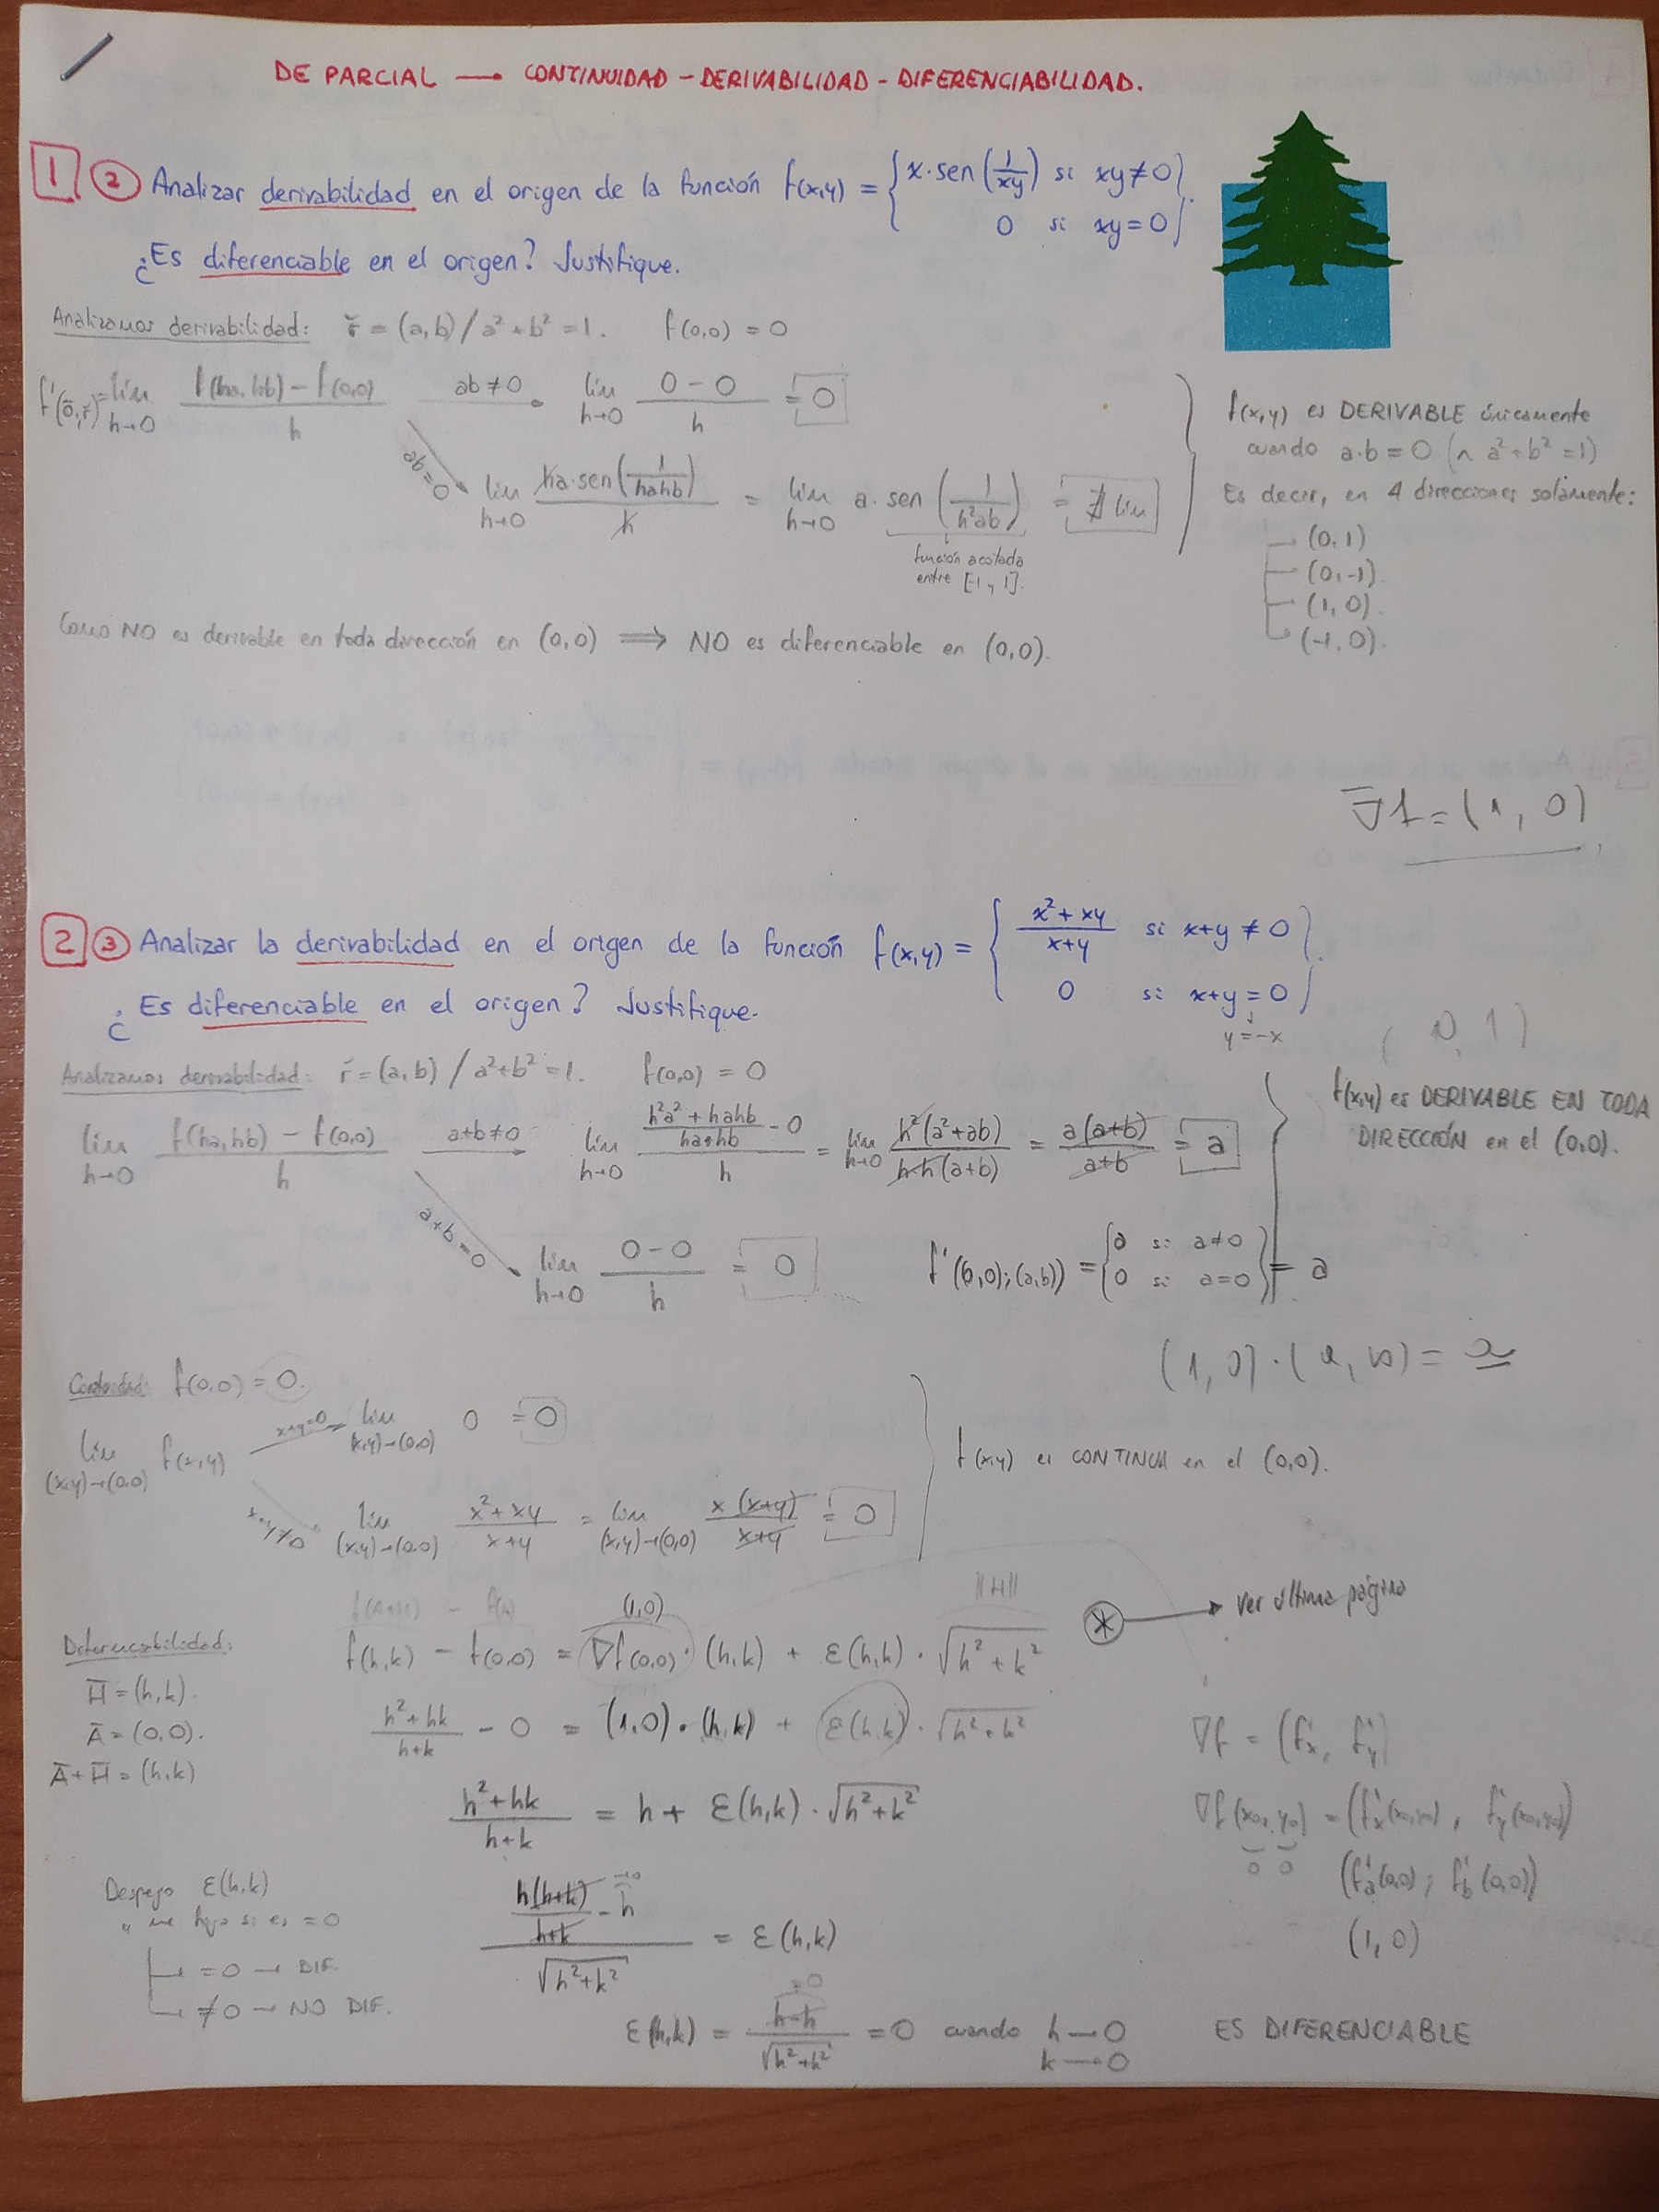 DE PARCIAL → CONTINUIDAD - DERIVABILIDAD - DIFERENCIABILIDAD.
1 ② Analizar derivabilidad en el origen de la función f(x,y) = { x·sen(1/xy) si xy≠0
0 si xy=0 }.
¿Es diferenciable en el origen? Justifique.
Analizamos derivabilidad: ř = (a,b) / a²+b²=1. f(0,0) = 0
f'(0̄,ř) = lim h→0 (f(ha,hb) - f(0,0))/h ab≠0 → lim h→0 (0-0)/h = 0
ab=0 ↘ lim h→0 (ha·sen(1/hahb))/h = lim h→0 a·sen(1/h²ab) = ∄ lim
función acotada
entre [-1,1].
f(x,y) es DERIVABLE únicamente
cuando a·b=0 (∧ a²+b²=1)
Es decir, en 4 direcciones solamente:
(0,1)
(0,-1).
(1,0).
(-1,0).
Como NO es derivable en toda dirección en (0,0) ⟹ NO es diferenciable en (0,0).
∇f = (1, 0)
2 ③ Analizar la derivabilidad en el origen de la función f(x,y) = { (x²+xy)/(x+y) si x+y≠0
0 si x+y=0 }.
y=-x
¿Es diferenciable en el origen? Justifique.
(0,1)
Analizamos derivabilidad: ř = (a,b) / a²+b²=1. f(0,0) = 0
lim h→0 (f(ha,hb) - f(0,0))/h a+b≠0 → lim h→0 ((h²a²+hahb)/(ha+hb) - 0)/h = lim h→0 h²(a²+ab)/(h·h(a+b)) = a(a+b)/(a+b) = a
f(x,y) es DERIVABLE EN TODA
DIRECCIÓN en el (0,0).
a+b=0 ↘ lim h→0 (0-0)/h = 0
f'((0,0);(a,b)) = { a si a≠0
0 si a=0 } = a
(1,0)·(a,b) = a
Continuidad: f(0,0) = 0.
lim (x,y)→(0,0) f(x,y) x+y=0 → lim (x,y)→(0,0) 0 = 0
x+y≠0 lim (x,y)→(0,0) (x²+xy)/(x+y) = lim (x,y)→(0,0) x(x+y)/(x+y) = 0
f(x,y) es CONTINUA en el (0,0).
f(A+H) - f(A) (1,0) ||H||
Diferenciabilidad: f(h,k) - f(0,0) = ∇f(0,0)·(h,k) + ε(h,k)·√(h²+k²)
⊛ → ver última página
H̄=(h,k).
Ā=(0,0).
Ā+H̄=(h,k)
(h²+hk)/(h+k) - 0 = (1,0)·(h,k) + ε(h,k)·√(h²+k²)
(h²+hk)/(h+k) = h + ε(h,k)·√(h²+k²)
∇f = (f'x, f'y)
∇f(x₀,y₀) = (f'x(x₀,y₀), f'y(x₀,y₀))
0 0 (f'a(0,0); f'b(0,0))
(1,0)
Despejo ε(h,k)
y me fijo si es =0
=0 → DIF.
≠0 → NO DIF.
(h(h+k)/(h+k) - h)/√(h²+k²) = ε(h,k)
=0
ε(h,k) = (h-h)/√(h²+k²) = 0 cuando h→0
k→0
ES DIFERENCIABLE